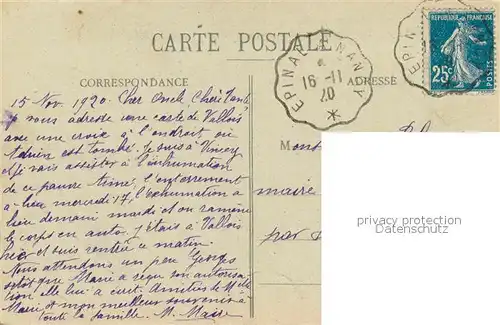 CARTE POSTALE
EPINAL A NANCY
16-11
20
EPINAL
REPUBLIQUE FRANÇAISE
25c
POSTES
CORRESPONDANCE
ADRESSE
15 Nov. 1920. Cher Oncle Chère Tante
Je vous adresse une carte de Vallois
avec une croix à l'endroit où
Adrien est tombé. Je suis à Vincey
et j'y vais assister à l'inhumation
de ce pauvre Aimé, l'enterrement
a lieu mercredi 17, l'exhumation a
lieu demain mardi et on ramène
le corps en auto. J'étais à Vallois
hier et suis rentrée ce matin.
Nous attendons un peu Georges
sitôt que Marie a reçu son autorisa
tion elle lui a écrit. Amitiés de M
Marie et mon meilleur souvenir à
toute la famille. M. Maire
Mons
maire
par
privacy protection